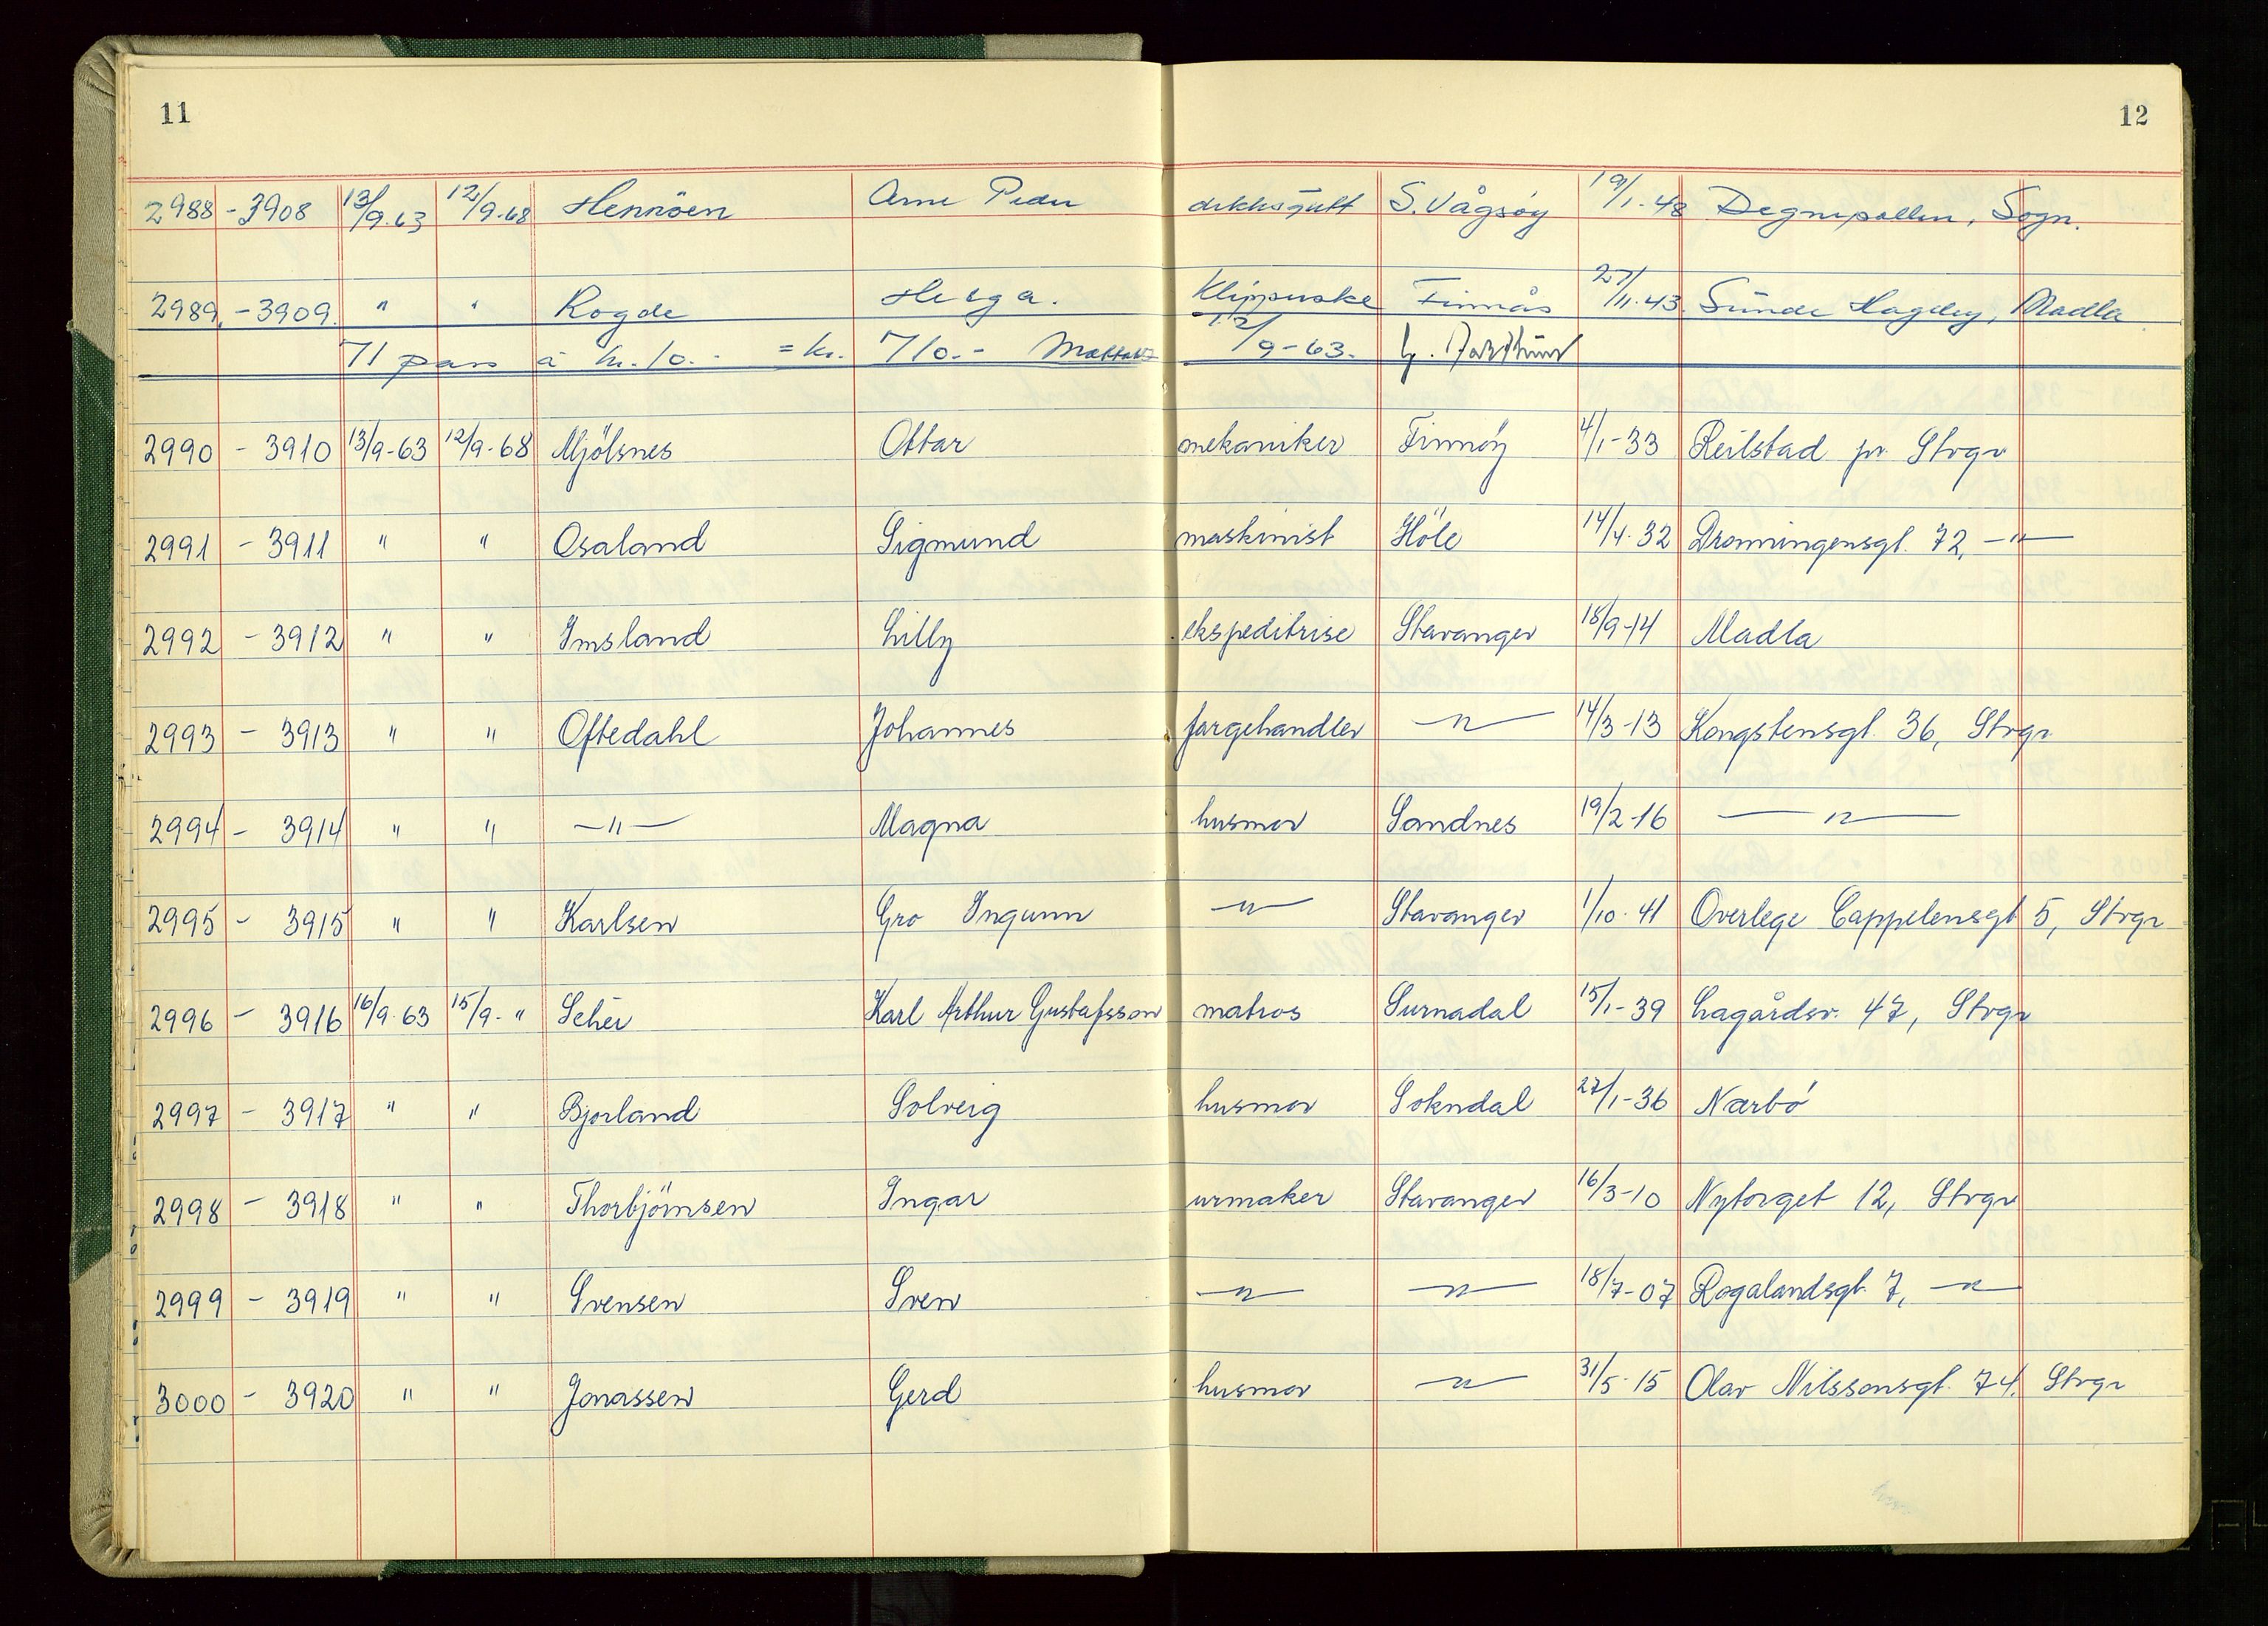 11
12
2988 - 3908 13/9.63 12/9.68 Hennöen Arne Peder dekksgutt S. Vågsøy 19/1.48 Degnepollen, Sogn.
2989 - 3909. " " Rogde Helga. Finnås 27/11.43. Sunde Hageby, Madla
71 pass à kr. 10.- = kr. 710.- Mottatt 12/9-63.
2990 - 3910 13/9-63 12/9-68 Mjölsnes Ottar mekaniker Finnöy 4/1-33 Reilstad pr Stvgr
2991 - 3911 " " Osaland Sigmund maskinist Höle 14/4.32 Dronningensgt. 72, -"-
2992 - 3912 " " Imsland Lilly ekspeditrise Stavanger 18/9-14 Madla
2993 - 3913 " " Oftedahl Johannes fargehandler -"- 14/3-13 Kongstensgt. 36, Stvgr
2994 - 3914 " " -"- Magna husmor Sandnes 19/2-16 -"-
2995 - 3915 " " Karlsen Gro Ingunn -"- Stavanger 1/10-41 Overlege Cappelensgt 5, Stvgr
2996 - 3916 16/9.63 15/9-" Sehér Karl Arthur Gustafsson matros Surnadal 15/1-39 Lagårdsv. 47, Stvgr
2997 - 3917 " " Bjorland Solveig husmor Sokndal 27/1-36 Nærbö
2998 - 3918 " " Thorbjörnsen Ingar urmaker Stavanger 16/3-10 Nytorget 12, Stvgr
2999 - 3919 " " Svensen Sven -"- -"- 18/7-07 Rogalandsgt. 7, -"-
3000 - 3920 " " Jonassen Gerd husmor -"- 31/5-15 Olav Nilssonsgt. 74, Stvgr